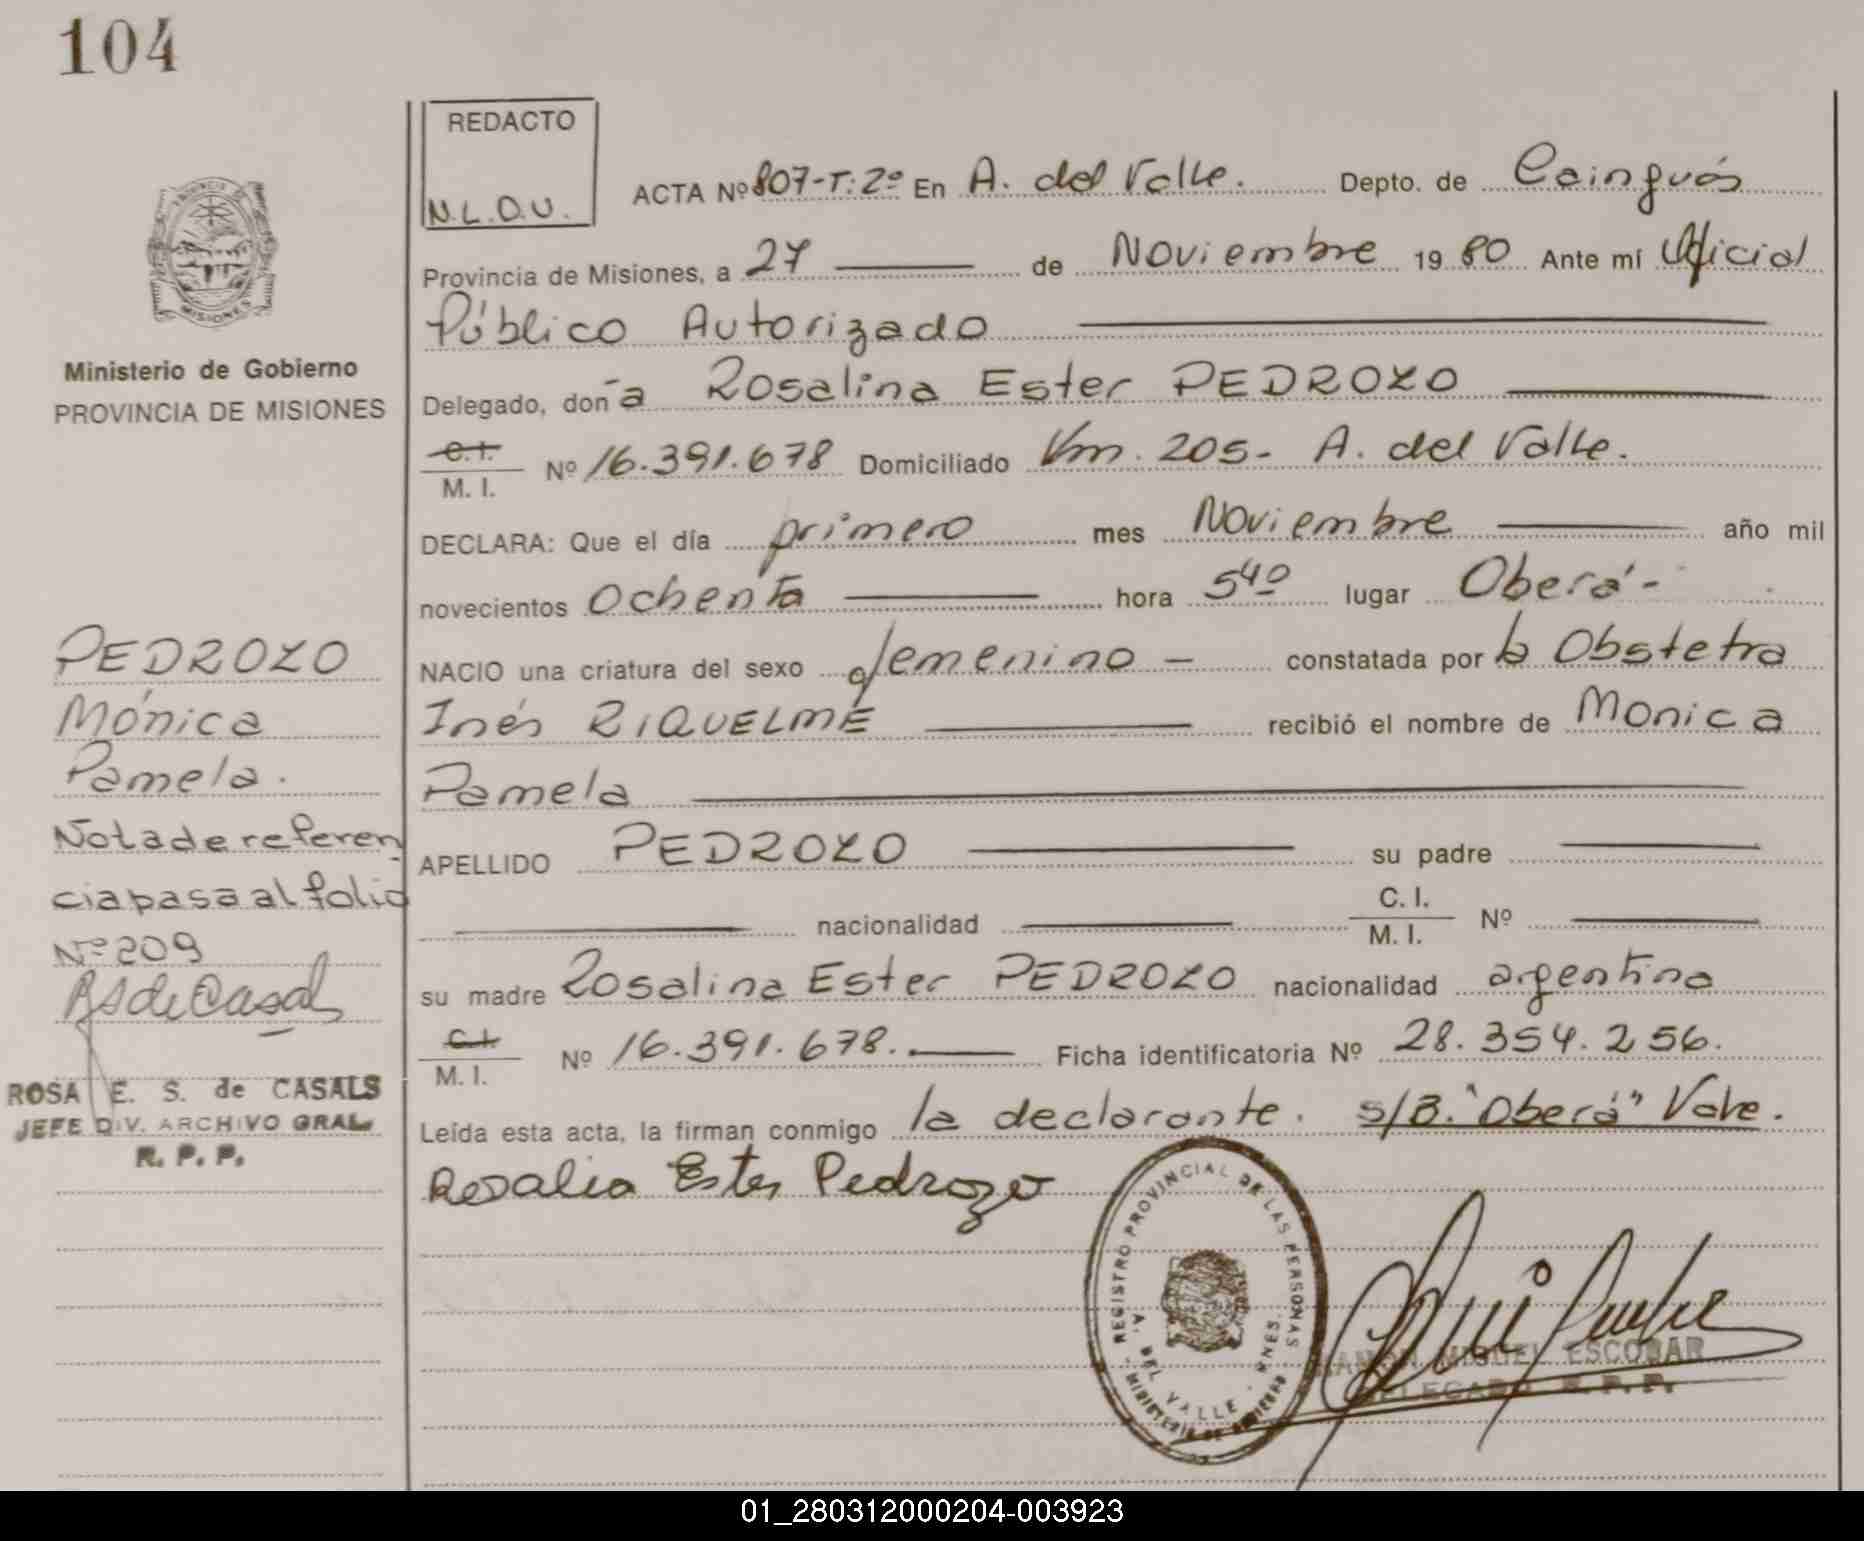 104
REDACTO
N.L.D.U.
ACTA Nº 807-T.2º En A. del Valle. Depto. de Cainguás
Provincia de Misiones, a 27 de Noviembre 1980 Ante mí Oficial
Público Autorizado
Delegado, doña Rosalina Ester PEDROZO
C.I. M. I. Nº 16.391.678 Domiciliado Km. 205- A. del Valle.
DECLARA: Que el día primero mes Noviembre año mil
novecientos Ochenta hora 5 40 lugar Oberá-
NACIO una criatura del sexo femenino - constatada por la Obstetra
Inés RIQUELME recibió el nombre de Monica
Pamela
APELLIDO PEDROZO su padre
nacionalidad C. I. M. I. Nº
su madre Rosalina Ester PEDROZO nacionalidad argentina
C.I. M. I. Nº 16.391.678. Ficha identificatoria Nº 28.354.256.
Leída esta acta, la firman conmigo la declarante. s/B. "Oberá" Vale.
Rosalia Ester Pedrozo
REGISTRO PROVINCIAL DE LAS PERSONAS
A. DEL VALLE - MNES.
MINISTERIO DE GOBIERNO
RAMON MIGUEL ESCOBAR
DELEGADO R. P. P.
PROVINCIA DE
MISIONES
Ministerio de Gobierno
PROVINCIA DE MISIONES
PEDROZO
Mónica
Pamela.
Nota de referen
cia pasa al folio
Nº 209
RS de Casals
ROSA E. S. de CASALS
JEFE DIV. ARCHIVO GRAL.
R. P. P.
01_280312000204-003923